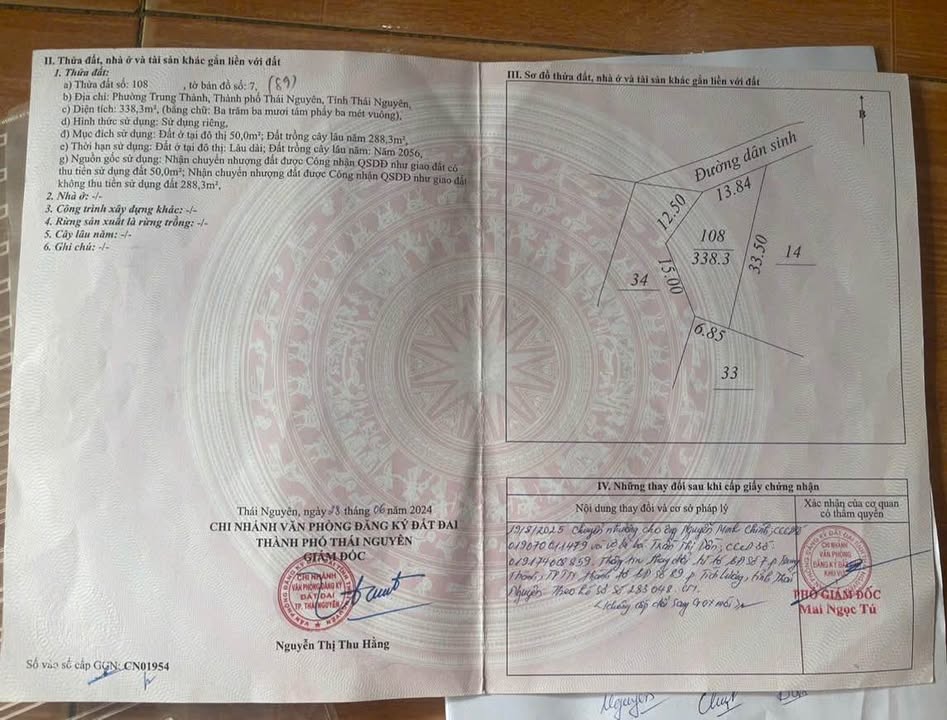 II. Thửa đất, nhà ở và tài sản khác gắn liền với đất
1. Thửa đất:
a) Thửa đất số: 108 , tờ bản đồ số: 7, (89)
b) Địa chỉ: Phường Trung Thành, Thành phố Thái Nguyên, Tỉnh Thái Nguyên,
c) Diện tích: 338,3m², (bằng chữ: Ba trăm ba mươi tám phẩy ba mét vuông),
d) Hình thức sử dụng: Sử dụng riêng,
đ) Mục đích sử dụng: Đất ở tại đô thị 50,0m²; Đất trồng cây lâu năm 288,3m²,
e) Thời hạn sử dụng: Đất ở tại đô thị: Lâu dài; Đất trồng cây lâu năm: Năm 2056,
g) Nguồn gốc sử dụng: Nhận chuyển nhượng đất được Công nhận QSDĐ như giao đất có
thu tiền sử dụng đất 50,0m²; Nhận chuyển nhượng đất được Công nhận QSDĐ như giao đất
không thu tiền sử dụng đất 288,3m²,
2. Nhà ở: -/-
3. Công trình xây dựng khác: -/-
4. Rừng sản xuất là rừng trồng: -/-
5. Cây lâu năm: -/-
6. Ghi chú: -/-
Thái Nguyên, ngày 28 tháng 06 năm 2024
CHI NHÁNH VĂN PHÒNG ĐĂNG KÝ ĐẤT ĐAI
THÀNH PHỐ THÁI NGUYÊN
GIÁM ĐỐC
CHI NHÁNH
VĂN PHÒNG ĐĂNG KÝ
ĐẤT ĐAI
TP. THÁI NGUYÊN
Nguyễn Thị Thu Hằng
Số vào sổ cấp GCN: CN01954
III. Sơ đồ thửa đất, nhà ở và tài sản khác gắn liền với đất
B
Đường dân sinh
13.84
12.50
108
338.3
33.50
14
15.00
34
6.85
33
IV. Những thay đổi sau khi cấp giấy chứng nhận
Nội dung thay đổi và cơ sở pháp lý
Xác nhận của cơ quan
có thẩm quyền
19/8/2025 Chuyển nhượng cho ông Nguyễn Minh Chính, CCCD
019070011479 và bà Trần Thị Dần, CCCD số
Thông tin thay đổi từ tờ BĐ số 7 p Trung
Thành, TP TN thành tờ BĐ số 89 p Tích Lương, tỉnh Thái
Nguyên Theo hồ sơ số
CHI NHÁNH
VĂN PHÒNG
ĐĂNG KÝ ĐẤT ĐAI
KHU VỰC
PHÓ GIÁM ĐỐC
Mai Ngọc Tú
Nguyễn